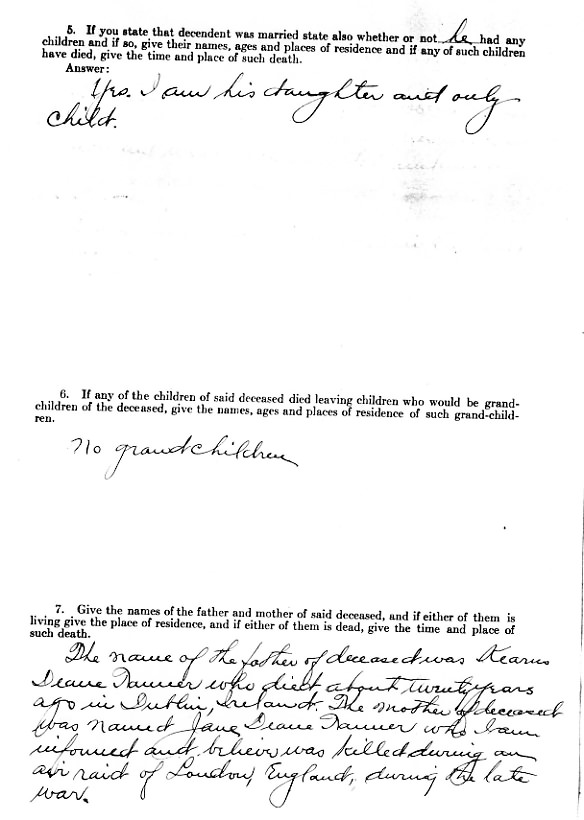 5. If you state that decendent was married state also whether or not he had any
children and if so, give their names, ages and places of residence and if any of such children
have died, give the time and place of such death.
Answer:
Yes. I am his daughter and only
child.
6. If any of the children of said deceased died leaving children who would be grand-
children of the deceased, give the names, ages and places of residence of such grand-child-
ren.
No grandchildren
7. Give the names of the father and mother of said deceased, and if either of them is
living give the place of residence, and if either of them is dead, give the time and place of
such death.
The name of the father of deceased was Kearns
Deane Tanner who died about twenty years
ago in Dublin, Ireland. The mother of deceased
was named Jane Deane Tanner who I am
informed and believe was killed during an
air raid of London, England, during the late
war.